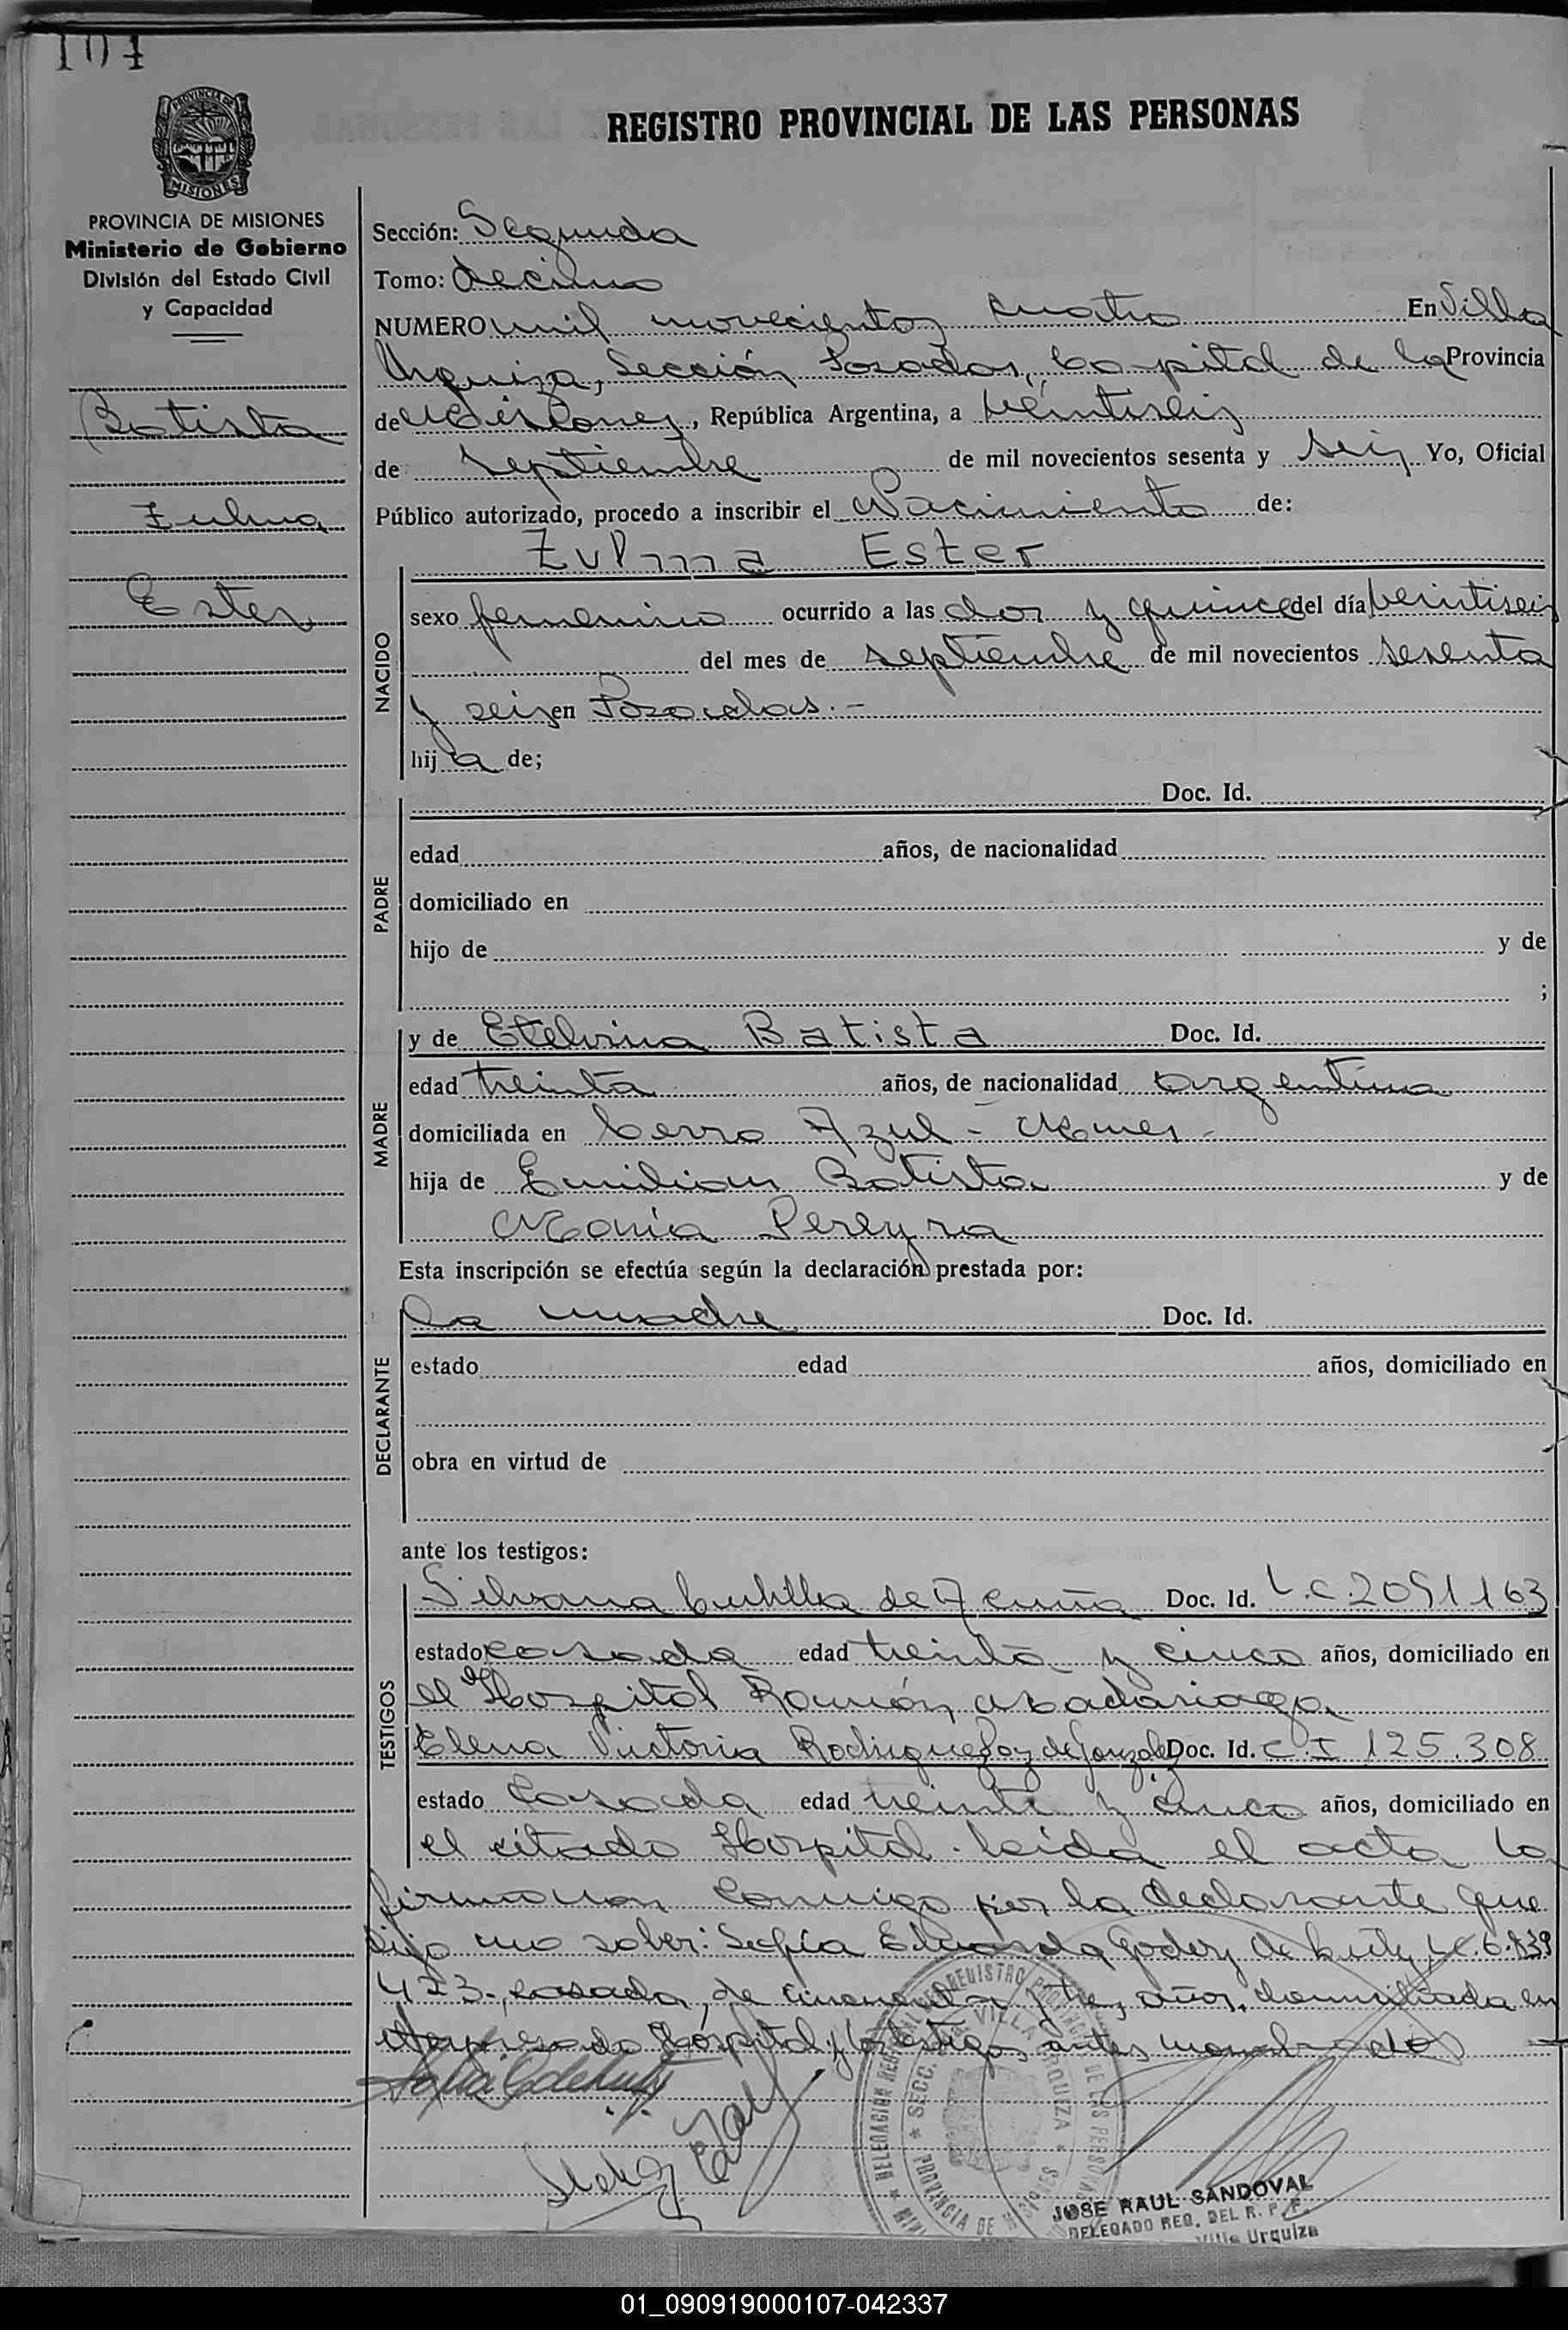 107
REGISTRO PROVINCIAL DE LAS PERSONAS
PROVINCIA DE
MISIONES
PROVINCIA DE MISIONES
Ministerio de Gobierno
División del Estado Civil
y Capacidad
Batista
Zulma
Ester
Sección: Segunda
Tomo: decimo
NUMERO mil novecientos cuatro En Villa
Urquiza, Sección Posadas, Capital de la Provincia
de Misiones, República Argentina, a veintiseis
de septiembre de mil novecientos sesenta y seis Yo, Oficial
Público autorizado, procedo a inscribir el Nacimiento de:
Zulma Ester
NACIDO
sexo femenino ocurrido a las dos y quince del día veintiseis
del mes de septiembre de mil novecientos sesenta
y seis en Posadas.-
hija de;
PADRE
Doc. Id.
edad años, de nacionalidad
domiciliado en
hijo de y de
;
MADRE
y de Etelvina Batista Doc. Id.
edad treinta años, de nacionalidad argentina
domiciliada en Cerro Azul - Mnes.-
hija de Emilian Batista y de
María Pereyra
Esta inscripción se efectúa según la declaración prestada por:
DECLARANTE
la madre Doc. Id.
estado edad años, domiciliado en
obra en virtud de
ante los testigos:
TESTIGOS
Silvana de Acuña Doc. Id. L.C. 2091163
estado casada edad treinta y cinco años, domiciliado en
el Hospital Ramón Madariaga
Elena Victoria Rodriguez de Gonzalez Doc. Id. C.I 125.308
estado Casada edad treinta y cinco años, domiciliado en
el citado Hospital. Leída el acta la
firmaron conmigo por la declarante que
dijo no saber: Sofía Eduarda Godoy de L.C. 6.839
423-, casada, de cincuenta y tres años, domiciliada en
expresado Hóspital y los testigos antes nombrados
DELEGACION REGISTRO PROVINCIAL DE LAS PERSONAS
SECC. VILLA URQUIZA
PROVINCIA DE MISIONES
JOSE RAUL SANDOVAL
DELEGADO REG. DEL R. P. P.
Villa Urquiza
01_090919000107-042337